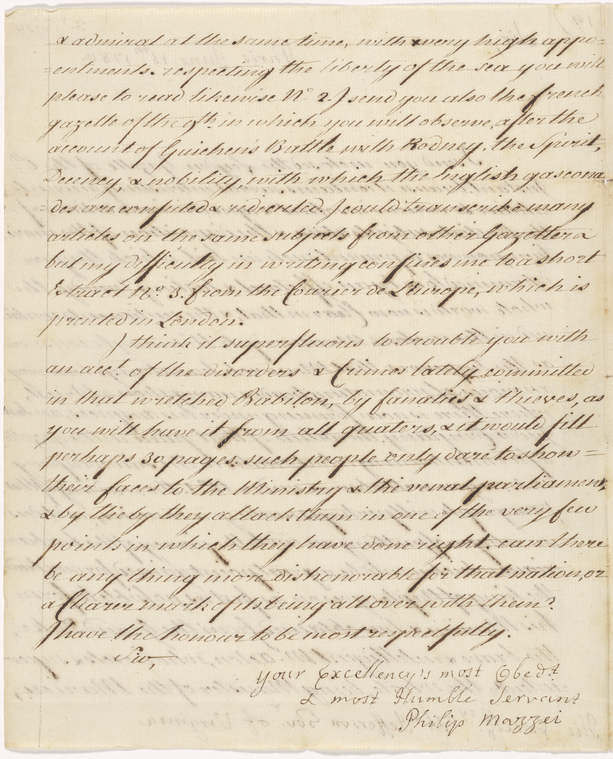 & admiral at the same time, with very high appo=
=entments. respecting the liberty of the sea you will
please to read likewise No. 2. I send you also the french
gazette of the 9th. in which you will observe, after the
account of Guichen's Battle with Rodney, the Spirit,
Decency, & nobility with which the English gascona=
des are confuted & redeculed. I could transcribe many
articles on the same subjects from other Gazettes &
but my difficulty in writing confines me to a short
Extract No. 3. from the Courier de L'Europe, which is
printed in London.
I think it superfluous to trouble you with
an acct. of the disorders & Crimes lately committed
in that wretched Babilon, by fanatics & thieves, as
you will have it from all quaters, & it would fill
perhaps 30 pages. such people only dare to show=
their faces to the Ministry & the venal parliament,
& by the by they attack them in one of the very few
points in which they have done right. can there
be any thing more dishonorable for that nation, or
a clearer mark of its being all over with them?
I have the honour to be most respectfully.
Sir,
Your Excellency's most Obedt.
& most Humble Servant
Philip Mazzei